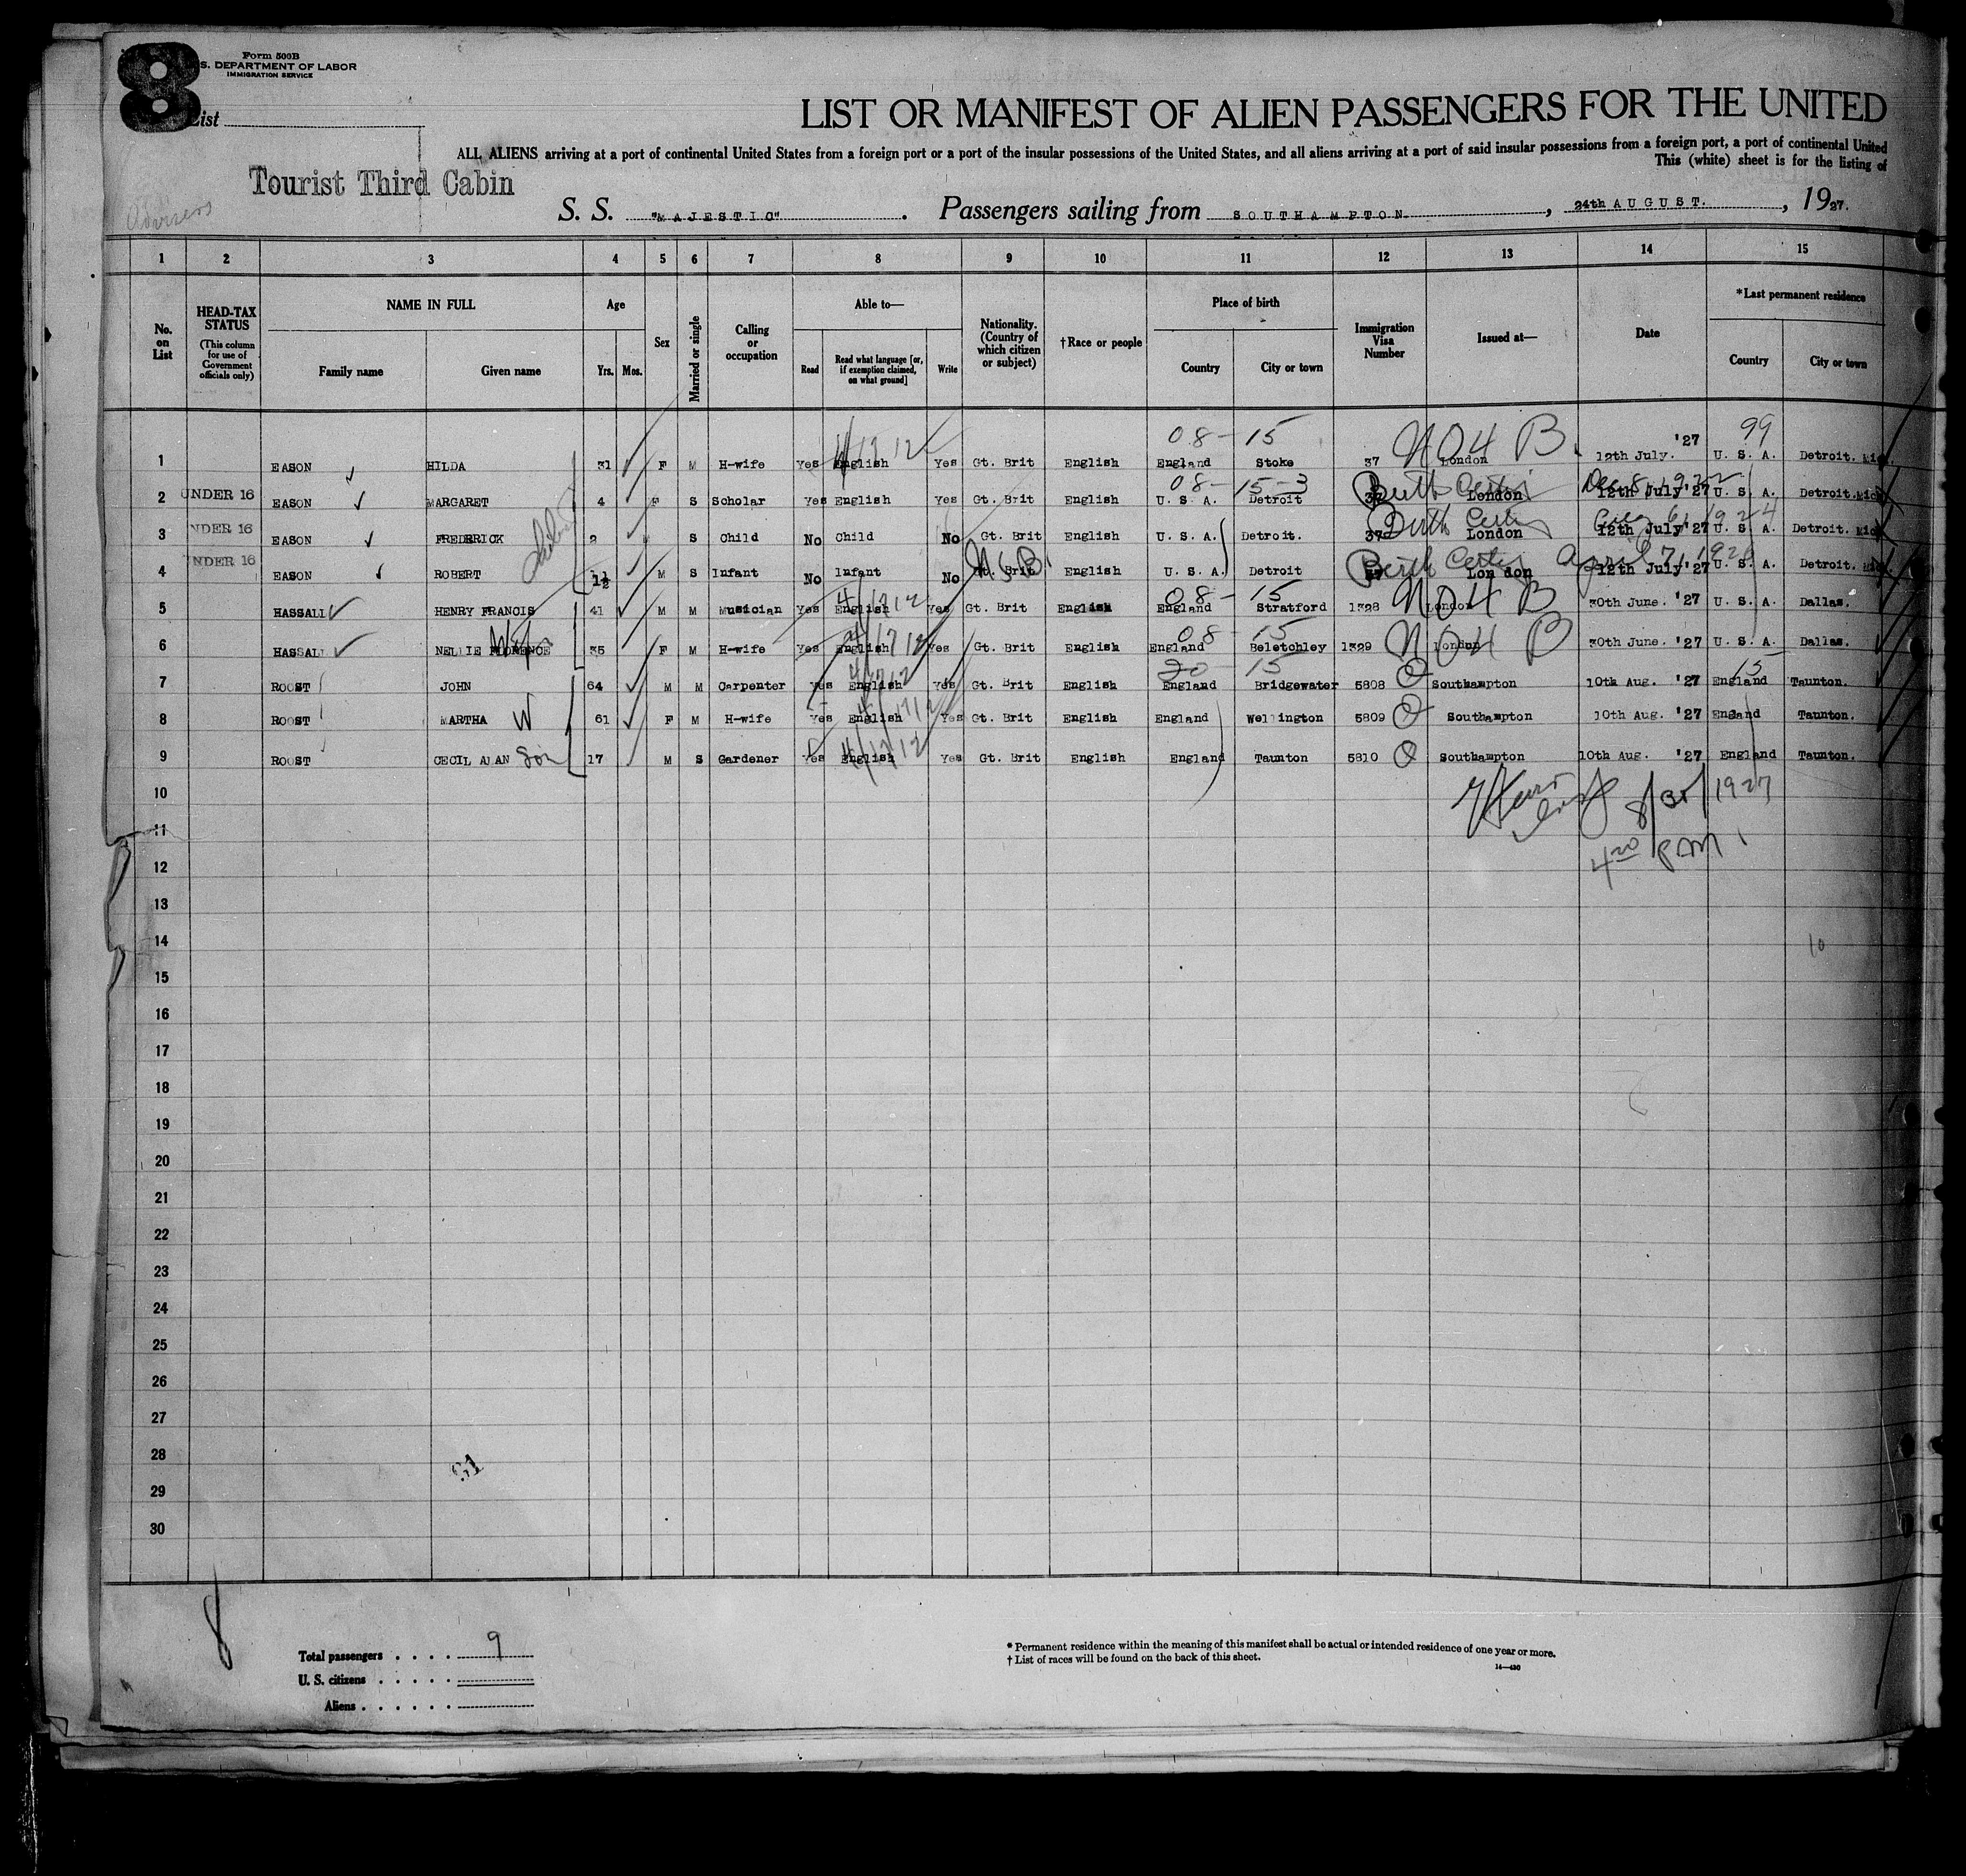 8
Form 500B
S. DEPARTMENT OF LABOR
IMMIGRATION SERVICE
List
LIST OR MANIFEST OF ALIEN PASSENGERS FOR THE UNITED
ALL ALIENS arriving at a port of continental United States from a foreign port or a port of the insular possessions of the United States, and all aliens arriving at a port of said insular possessions from a foreign port, a port of continental United
This (white) sheet is for the listing of
Tourist Third Cabin
S. S. "MAJESTIC". Passengers sailing from SOUTHAMPTON, 24th AUGUST., 1927.
1 2 3 4 5 6 7 8 9 10 11 12 13 14 15
No. on List
HEAD-TAX STATUS (This column for use of Government officials only)
NAME IN FULL Family name Given name
Age Yrs. Mos.
Sex
Married or single
Calling or occupation
Able to— Read Read what language [or, if exemption claimed, on what ground] Write
Nationality. (Country of which citizen or subject)
†Race or people
Place of birth Country City or town
Immigration Visa Number
Issued at—
Date
*Last permanent residence Country City or town
08-15 NO4 B. 99
1 EASON HILDA 31 F M H-wife Yes English Yes Gt. Brit English England Stoke 37 London 12th July. '27 U. S. A. Detroit. Mich.
08-15-3 Birth Certif Dec 8, 1922
2 UNDER 16 EASON MARGARET 4 F S Scholar Yes English Yes Gt. Brit English U. S. A. Detroit 37 London 12th July '27 U. S. A. Detroit. Mich
Birth Certif 1924
3 NDER 16 EASON FREDERICK 2 S Child No Child No Gt. Brit English U. S. A. Detroit. 37 London 12th July '27 U. S. A. Detroit. Mich
Birth Certif April 7, 1926
4 NDER 16 EASON ROBERT M S Infant No Infant No Gt. Brit English U. S. A. Detroit 37 London 12th July '27 U. S. A. Detroit. Mich.
4/1712 08-15 NO4 B
5 HASSALL HENRY FRANCIS 41 M M Musician Yes English Yes Gt. Brit English England Stratford 1328 London 30th June. '27 U. S. A. Dallas.
4/1712 08-15 NO4 B
6 HASSALL NELLIE FLORENCE Wif 35 F M H-wife Yes English Yes Gt. Brit English England Beletchley 1329 London 30th June. '27 U. S. A. Dallas.
20-15 15
7 ROOST JOHN 64 M M Carpenter Yes English Yes Gt. Brit English England Bridgewater 5808 Q Southampton 10th Aug. '27 England Taunton.
8 ROOST MARTHA W 61 F M H-wife Yes English Yes Gt. Brit English England Wellington 5809 Q Southampton 10th Aug. '27 England Taunton.
9 ROOST CECIL ALAN Son 17 M S Gardener Yes English Yes Gt. Brit English England Taunton 5810 Q Southampton 10th Aug. '27 England Taunton.
10
8/30/1927
11
4 20 P.M.
12
13
14
10
15
16
17
18
19
20
21
22
23
24
25
26
27
28
29
30
8
Total passengers . . . . 9
U. S. citizens . . . . .
Aliens . . . . . .
* Permanent residence within the meaning of this manifest shall be actual or intended residence of one year or more.
† List of races will be found on the back of this sheet.
14—430